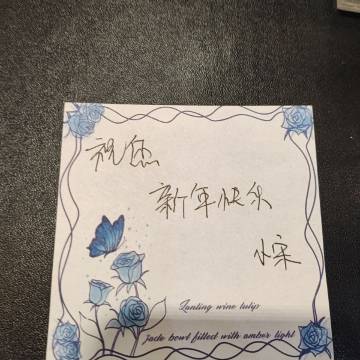 祝您
新年快乐
小宋
Lanting wine tulip
Jade bowl filled with amber light